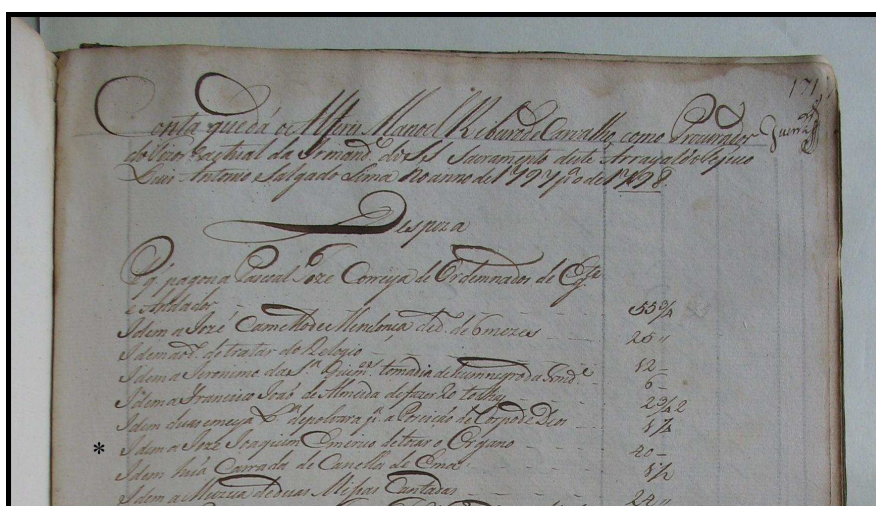 171
Conta que dá o Alferes Manoel Ribeiro d Carvalho, como Procurador
do Tizor.º actual da Irmand.e do SS. Sacramento deste Arrayal do Tejuco
Luis Antonio Salgado Lima no anno de 1797 p.ª o de 1798.
Despeza
P.g. pagou a Pascoal Joze Correya de Ordennados de
e Andador 55 3/4
Idem a José Camello de Mendonça de 6 mezes 25 "
Idem ao d. de tratar do Relogio 12 -
Idem a Jeronimo da S.ª Guim.es tomadia de hum negro da Irmd.e 6 -
Idem a Francisco João de Almeida de fazer 20 tochas
Idem duas p.ª a Porcicão do Corpo de Deos
* Idem a Joze Joaquim Emerico de tocar o Organo 40 -
Idem huã Carrada de Canella de Ema 1/2
Idem a Muzica de duas Missas Cantadas 24 "